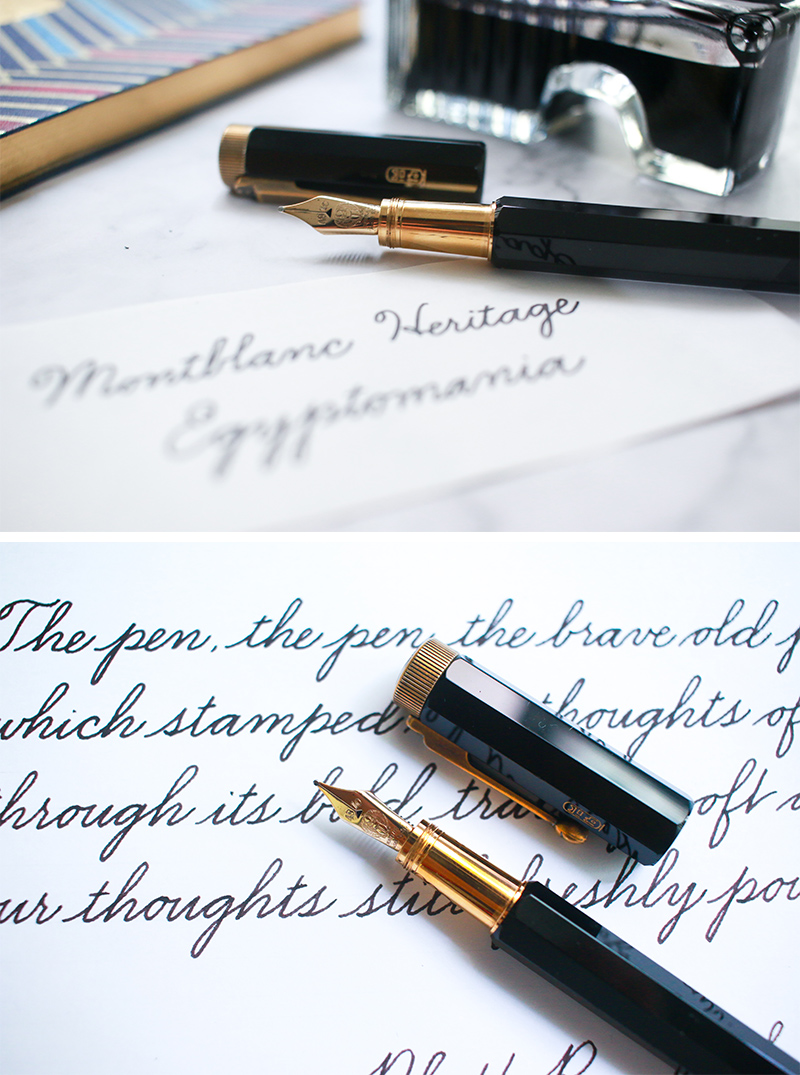 Montblanc Heritage
Egyptomania
The pen, the pen, the brave old
which stamped thoughts of
through its bold
our thoughts still freshly